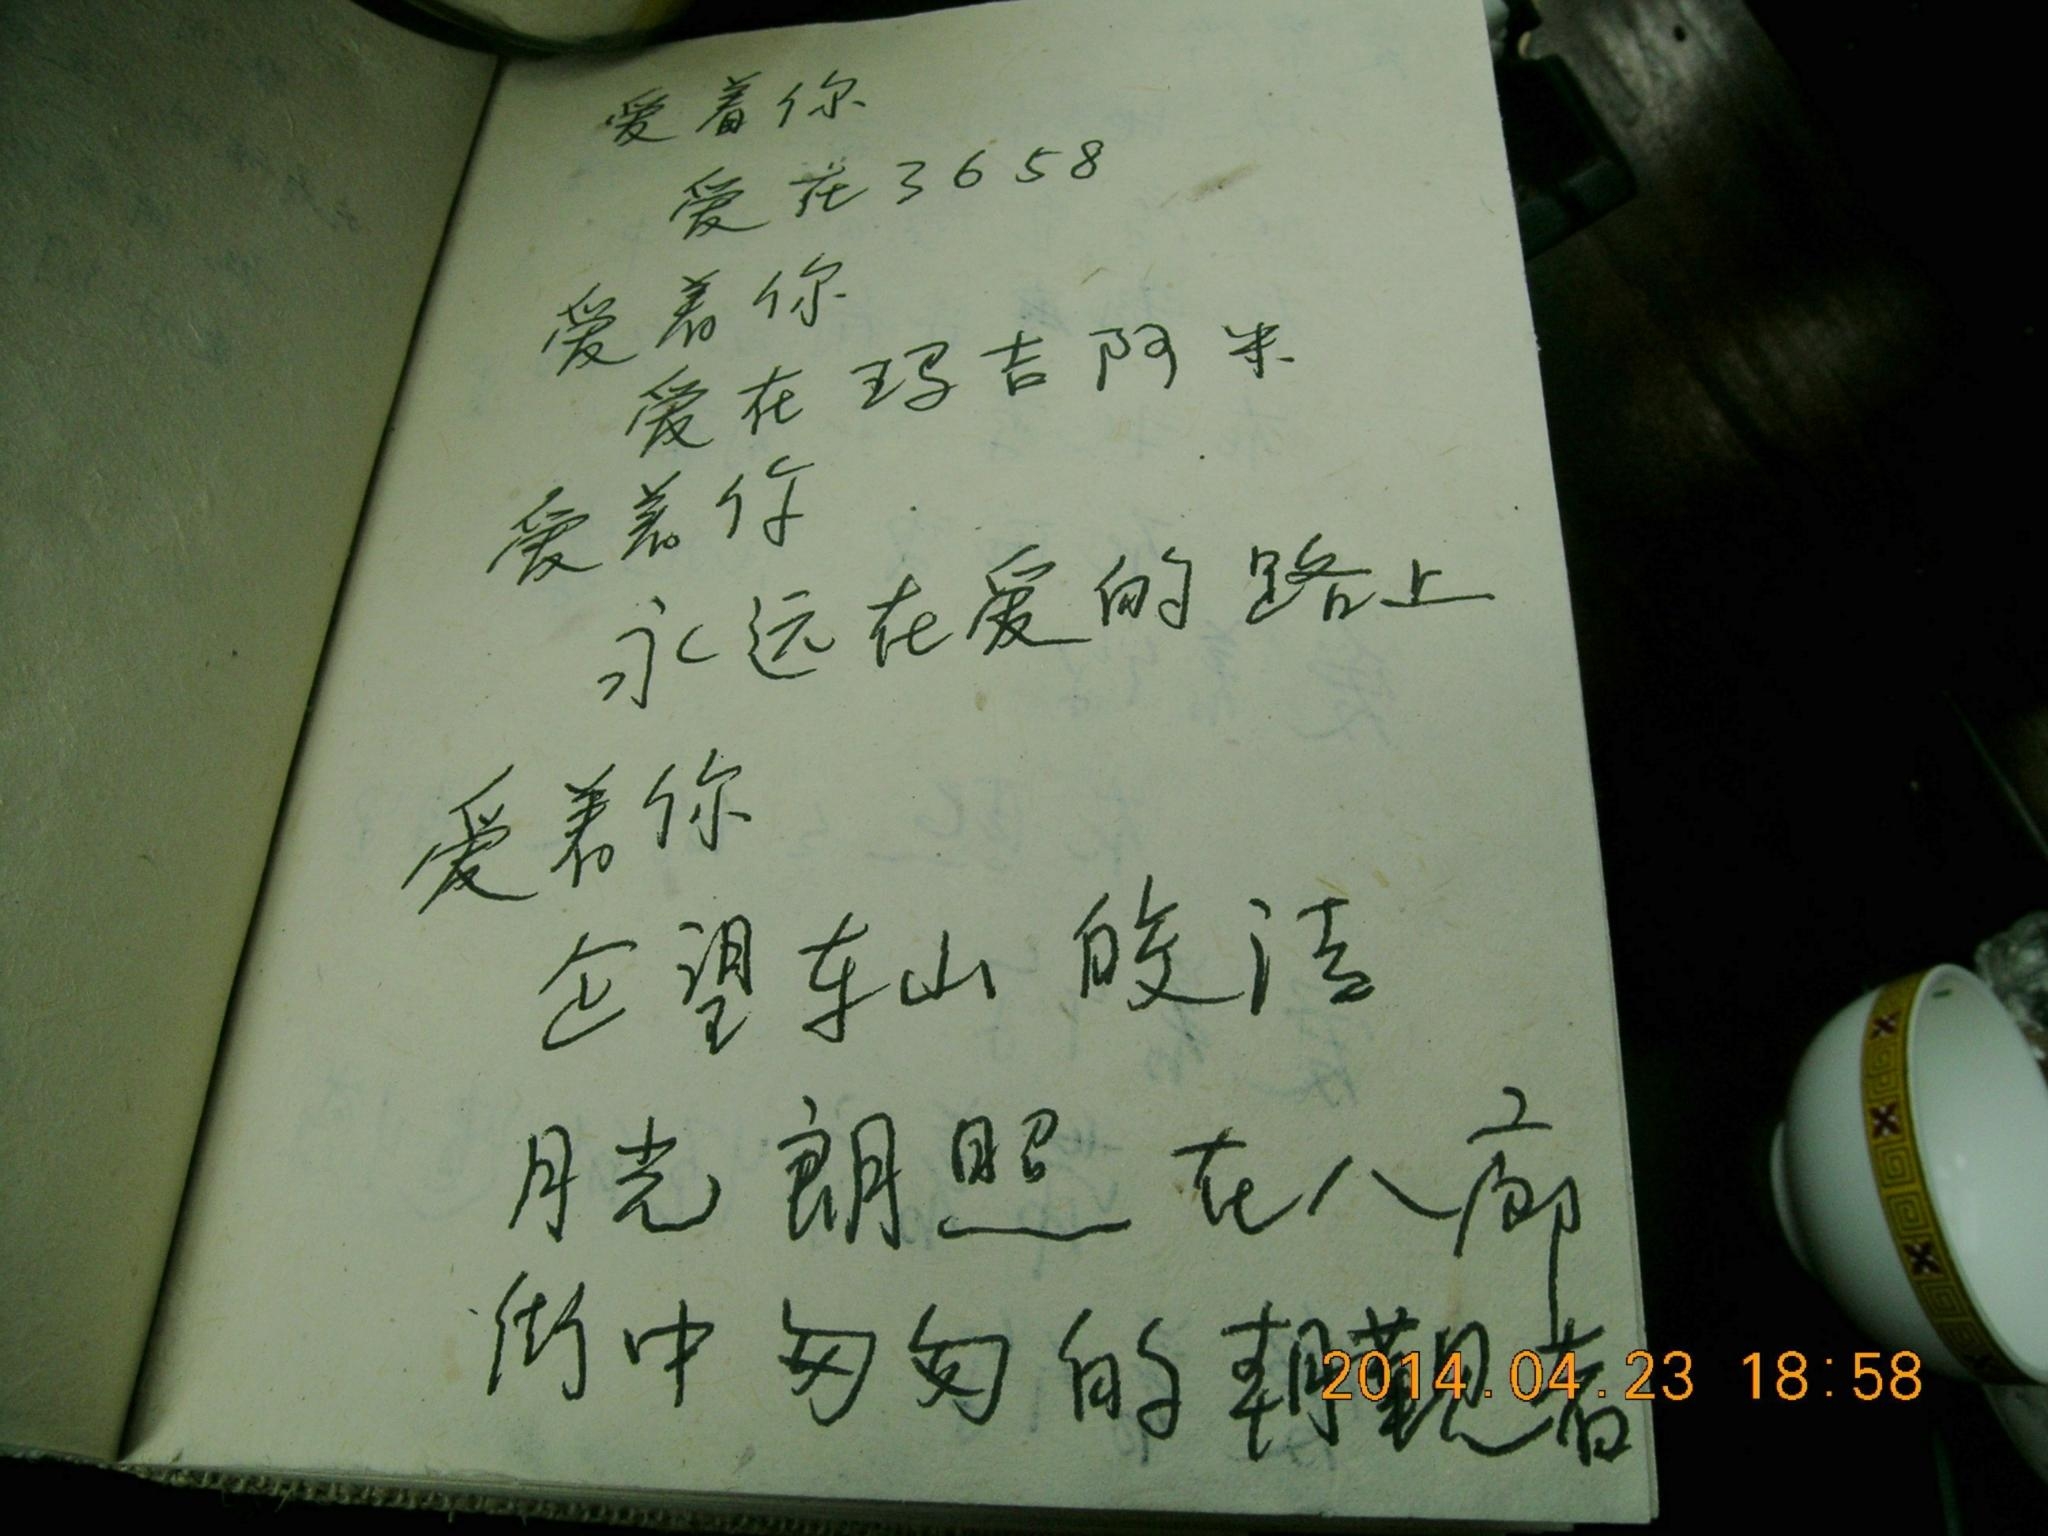 爱着你
爱在3658
爱着你
爱在玛吉阿米
爱着你
永远在爱的路上
爱着你
企望东山皎洁
月光朗照在八廓
街中匆匆的朝觐者
2014.04.23 18:58